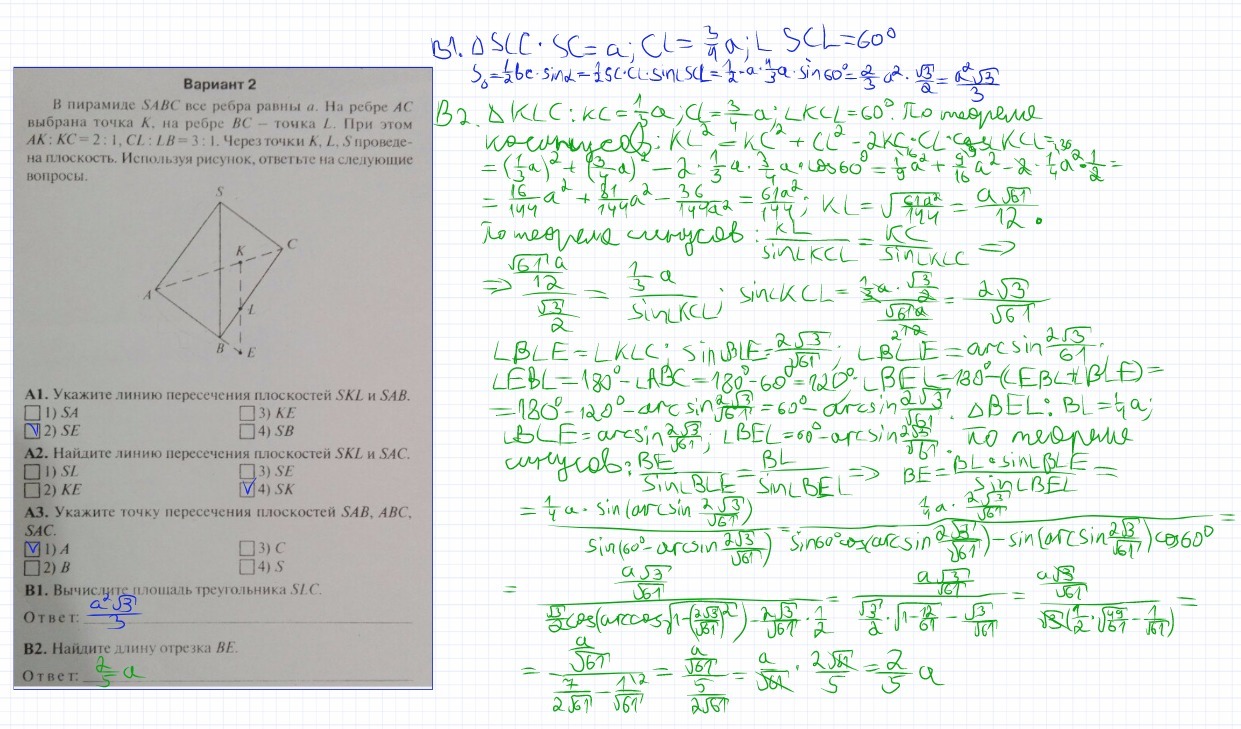 Вариант 2
В пирамиде SABC все ребра равны a. На ребре AC
выбрана точка K, на ребре BC – точка L. При этом
AK : KC = 2 : 1, CL : LB = 3 : 1. Через точки K, L, S проведе-
на плоскость. Используя рисунок, ответьте на следующие
вопросы.
S
K
C
A
L
B
E
А1. Укажите линию пересечения плоскостей SKL и SAB.
1) SA
3) KE
V 2) SE
4) SB
А2. Найдите линию пересечения плоскостей SKL и SAC.
1) SL
3) SE
2) KE
V 4) SK
А3. Укажите точку пересечения плоскостей SAB, ABC,
SAC.
V 1) A
3) C
2) B
4) S
В1. Вычислите площадь треугольника SLC.
Ответ: a²√3/3
В2. Найдите длину отрезка BE.
Ответ: 2/5 a
В1. ΔSLC. SC = a; CL = 3/4 a; ∠SCL = 60°
S₀ = 1/2 bc · sinα = 1/2 SC·CL·sin∠SCL = 1/2 · a · 4/3 a · sin60° = 2/3 a² · √3/2 = a²√3/3
В2. ΔKLC: KC = 1/3 a; CL = 3/4 a; ∠KCL = 60°. По теореме
косинусов: KL² = KC² + CL² - 2KC·CL·cos∠KCL =
= (1/3 a)² + (3/4 a)² - 2 · 1/3 a · 3/4 a · cos60° = 1/9 a² + 9/16 a² - 2 · 1/4 a² · 1/2 =
= 16/144 a² + 81/144 a² - 36/144 a² = 61a²/144; KL = √(61a²/144) = a√61/12.
По теореме синусов: KL/sin∠KCL = KC/sin∠KLC ⇒
⇒ (√61 a/12)/(√3/2) = (1/3 a)/sin∠KCL; sin∠KCL = (1/3 a · √3/2)/(√61 a/12) = 2√3/√61
∠BLE = ∠KLC; sin∠BLE = 2√3/√61; ∠BLE = arcsin 2√3/61.
∠EBL = 180° - ∠ABC = 180° - 60° = 120°. ∠BEL = 180° - (∠EBL + ∠BLE) =
= 180° - 120° - arcsin 2√3/√61 = 60° - arcsin 2√3/√61. ΔBEL: BL = 1/4 a;
∠BLE = arcsin 2√3/√61; ∠BEL = 60° - arcsin 2√3/√61. По теореме
синусов: BE/sin∠BLE = BL/sin∠BEL ⇒ BE = BL·sin∠BLE/sin∠BEL =
= (1/4 a · sin(arcsin 2√3/√61))/(sin(60° - arcsin 2√3/√61)) = (1/4 a · 2√3/√61)/(sin60°cos(arcsin 2√3/√61) - sin(arcsin 2√3/√61)cos60°) =
= (a√3/√61)/(√3/2 cos(arccos√(1-(2√3/√61)²)) - 2√3/√61 · 1/2) = (a√3/√61)/(√3/2 · √(1-12/61) - √3/√61) = (a√3/√61)/(√3(1/2 · √(49/61) - 1/√61)) =
= (a/√61)/(7/2√61 - 1/√61) = (a/√61)/(5/2√61) = a/√61 · 2√61/5 = 2/5 a